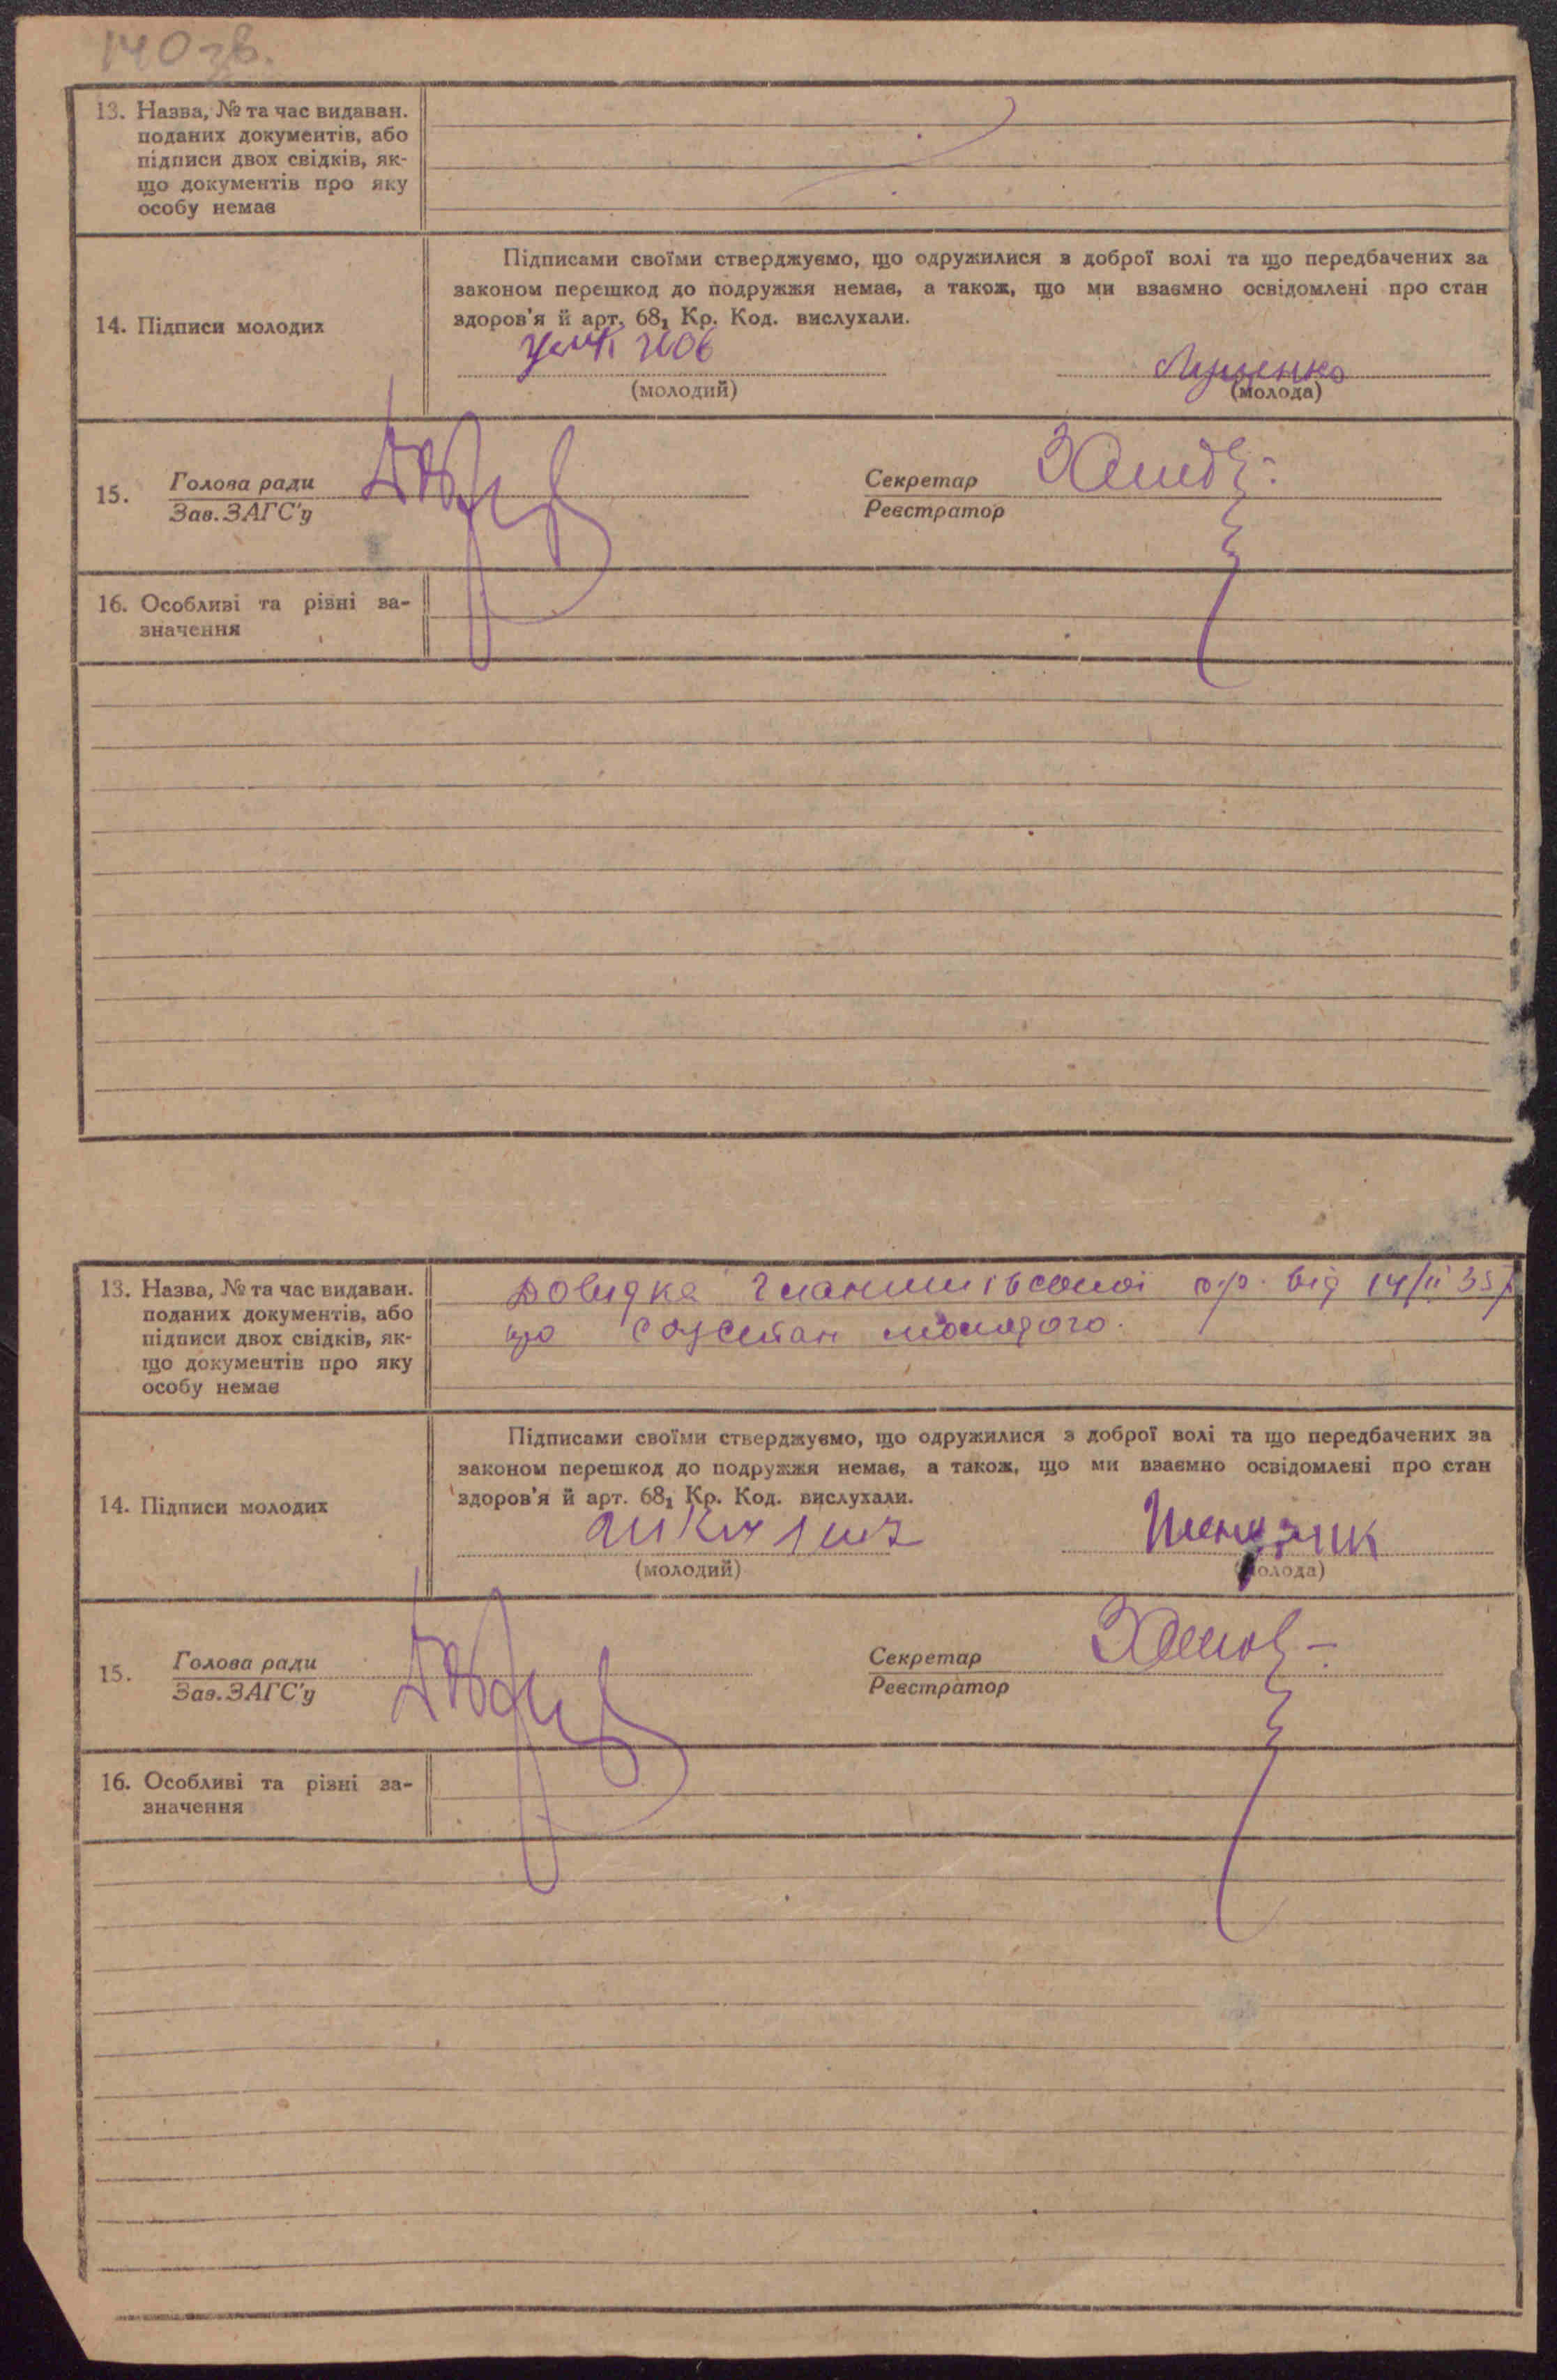 140 зв.
13. Назва, № та час видаван.
поданих документів, або
підписи двох свідків, як-
що документів про яку
особу немає
Підписами своїми стверджуємо, що одружилися з доброї волі та що передбачених за
законом перешкод до подружжя немає, а також, що ми взаємно освідомлені про стан
здоров'я й арт. 68₁ Кр. Код. вислухали.
14. Підписи молодих
Луценко
(молодий) (молода)
15. Голова ради Секретар
Зав. ЗАГС'у Реєстратор
16. Особливі та різні за-
значення
13. Назва, № та час видаван.
поданих документів, або
підписи двох свідків, як-
що документів про яку
особу немає
Довидка с/р. від 14/II 35р
про соцстан молодого.
Підписами своїми стверджуємо, що одружилися з доброї волі та що передбачених за
законом перешкод до подружжя немає, а також, що ми взаємно освідомлені про стан
здоров'я й арт. 68₁ Кр. Код. вислухали.
14. Підписи молодих
(молодий) (молода)
15. Голова ради Секретар
Зав. ЗАГС'у Реєстратор
16. Особливі та різні за-
значення